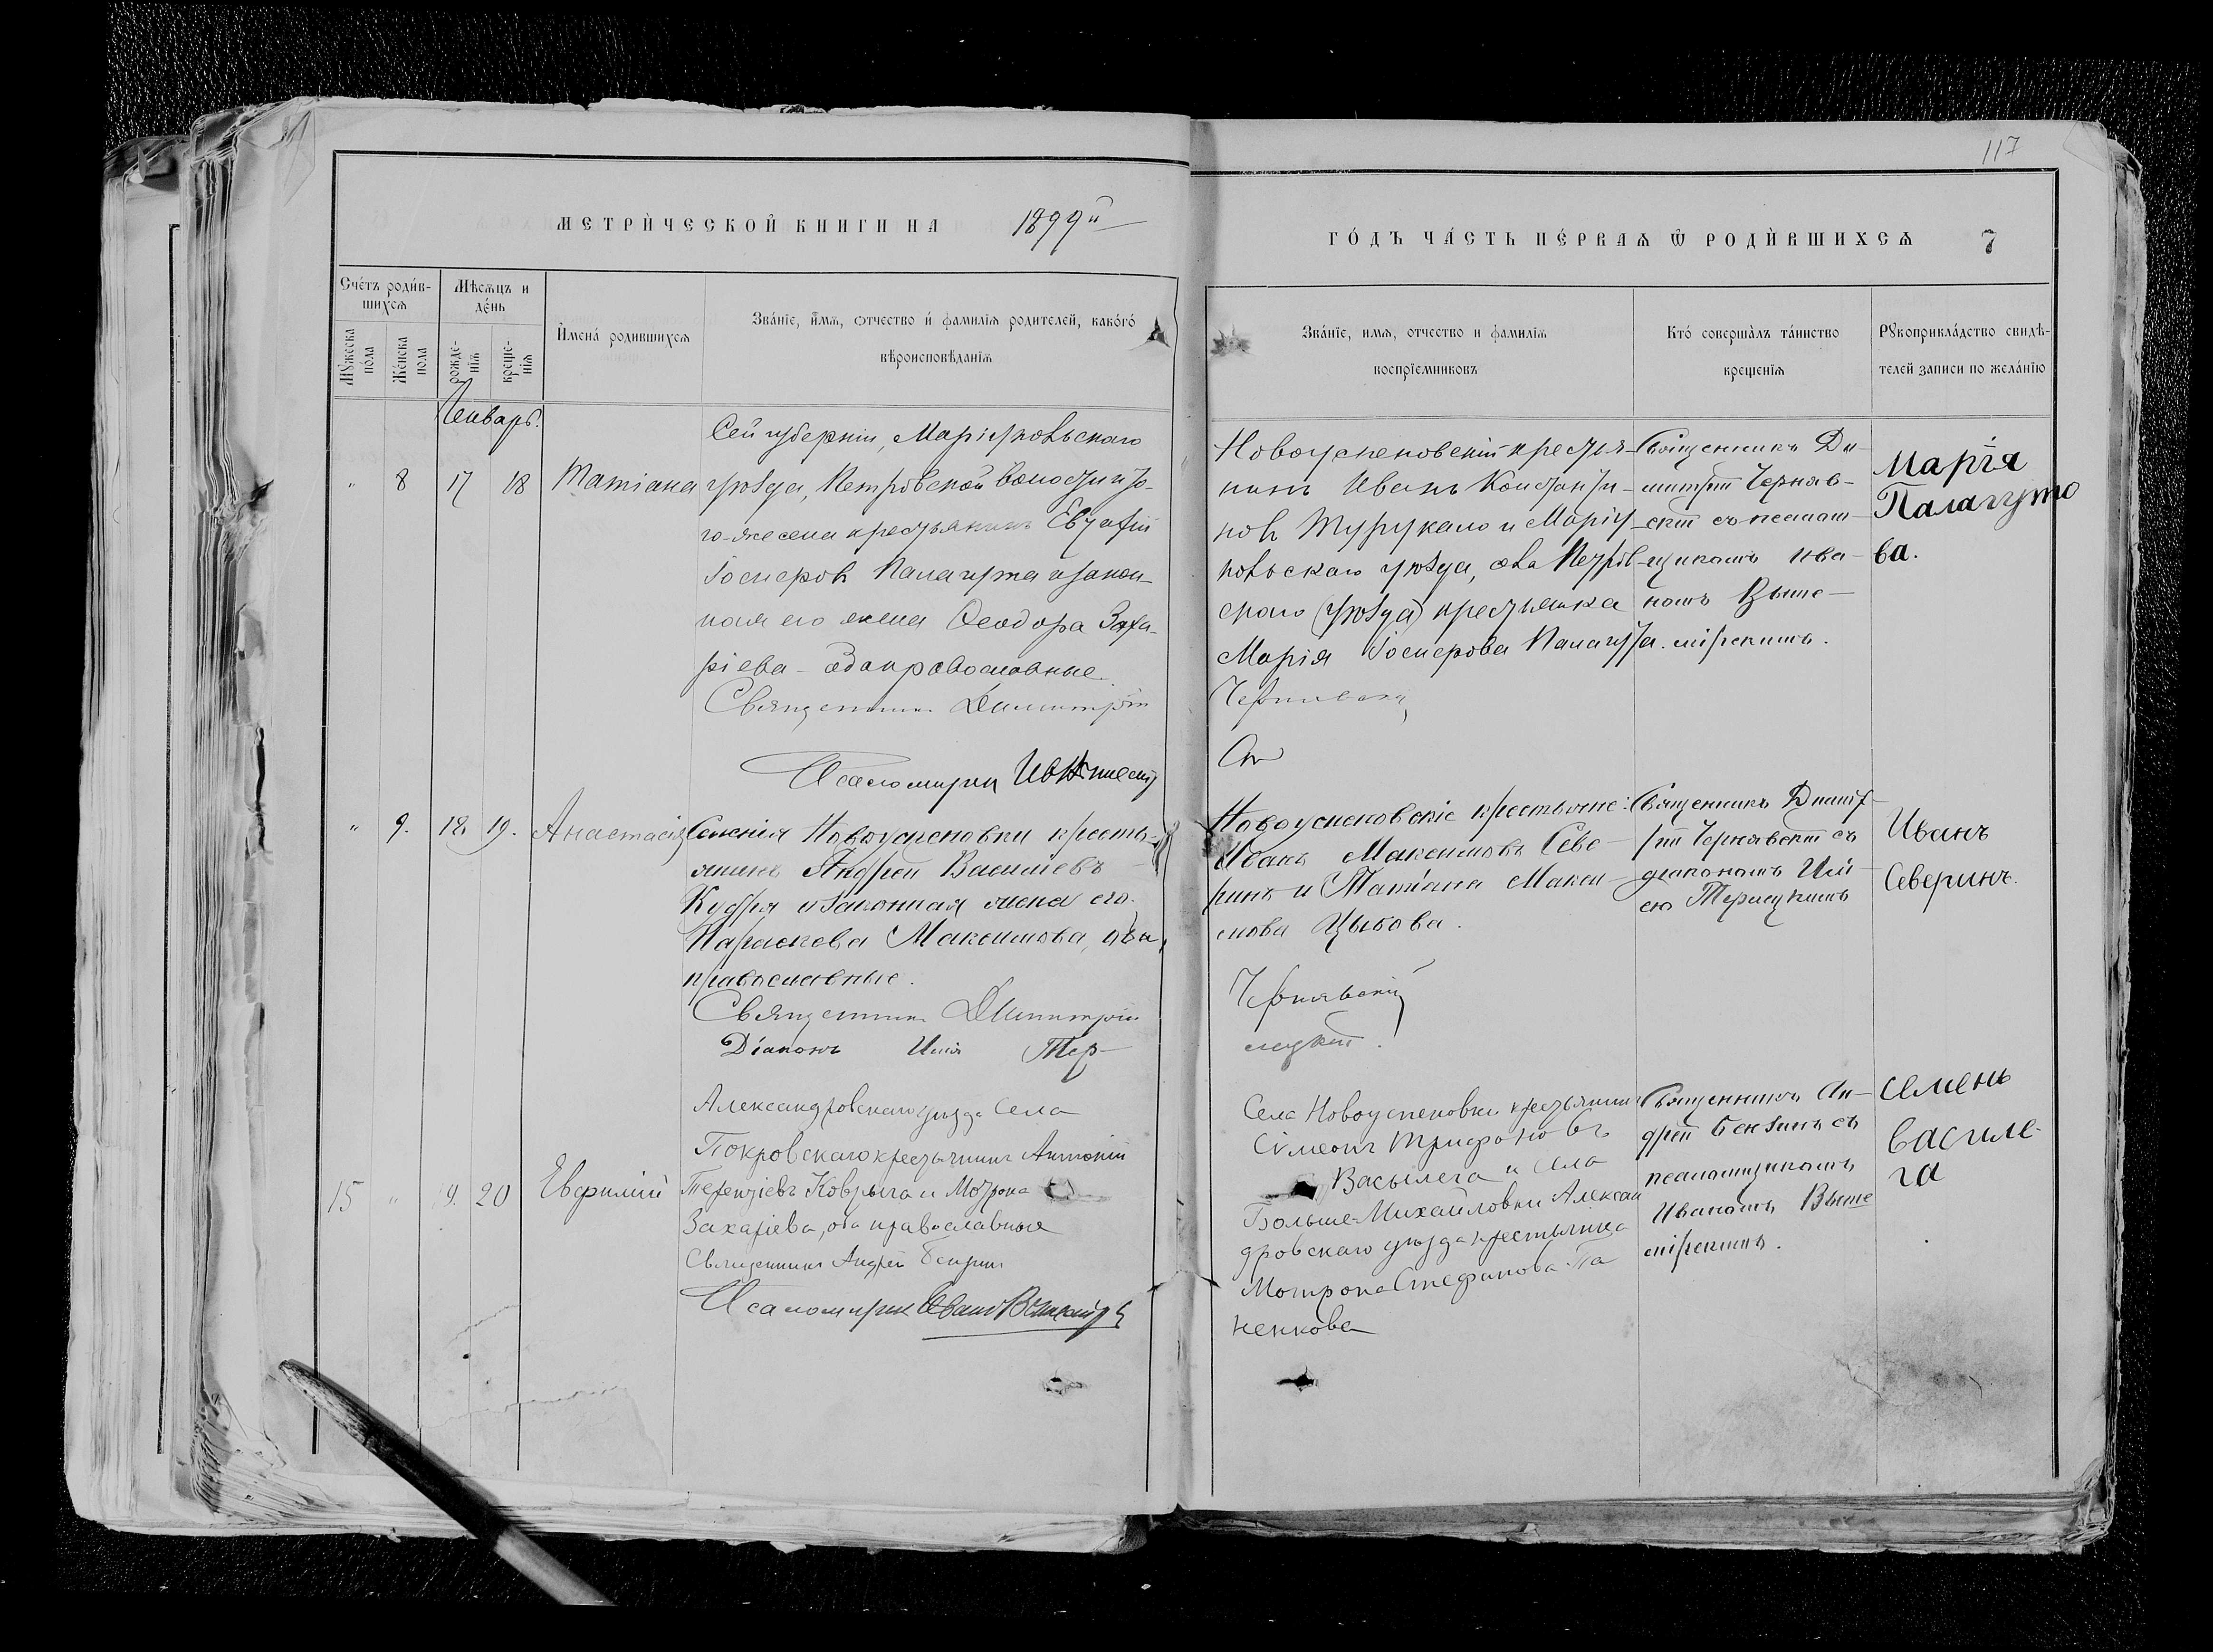 117
МЕТРИ́ЧЕСКОЙ КНИГИ НА 1899й
ГО́ДЪ ЧА́СТЬ ПЕ́РВАѦ Ѿ РОДИ́ВШИХСѦ 7
Счётъ роди́в-
шихсѧ
Мѣсѧцъ и
де́нь
Мꙋжеска
по́ла
Же́нска
пола
рожде-
нїѧ
креще-
нїѧ
И҆мена̀ родившихсѧ
Зва́нїе, и҆́мѧ, ѻтчество и҆ фамилїѧ родителей, како́гѡ
вѣроисповѣданїѧ
Зва́нїе, имѧ, отчество и фамилїѧ
воспрїемниковъ
Кто̀ соверша́лъ та́инство
крещенїѧ
Рꙋкоприкла́дство свидѣ-
телей записи по жела́нїю
Январь.
„ 8 17 18 Татіана
Сей губерніи, Маріупольскаго
уѣзда, Петровской волости и
го-же села крестьянинъ Евстафій
Госперовъ Палагута и закон-
ная его жена Ѳеодора Заха-
ріева - оба православные.
Священникъ Димитрій
Псаломщикъ
Новоуспеновскій крестья-
нинъ Иванъ Константи-
новъ Турукало и Маріу
польскаго уѣзда, села Петров
скаго (уѣзда) крестьянка
Марія Госперова Палагута.
Чернявскій
Священникъ Ди-
митрій Черняв-
скій съ псалом-
щикомъ Ива-
номъ Выше-
мірскимъ.
Марія
Палагуто
ва.
„ 9. 18. 19. Анастасія
Селенія Новоуспеновки кресть-
янинъ Андрей Васильевъ
Кудря и законная жена его
Параскева Максимова, оба
православные.
Священникъ Димитрій
Діаконъ Илія Тер-
Новоуспеновскіе крестьяне:
Иванъ Максимовъ Севе-
ринъ и Татіана Макси-
мова Цыбова.
Чернявскій
лецкій.
Священникъ Димит-
рій Чернявскій съ
діакономъ Илі-
ею Терлецкимъ
Иванъ
Северинъ.
15 „ 19. 20 Евфимій
Александровскаго уѣзда села
Покровскаго крестьянинъ Антоній
Терентіевъ Коврыга и Мотрона
Захаріева, оба православные
Священникъ Андрей Бензинъ
Псаломщикъ Иванъ
Села Новоуспеновки крестьянинъ
Сѵмеонъ Трифоновъ
Васылега и села
Больше-Михайловки Алексан
дровскаго уѣзда крестьянка
Мотрона Стефанова Па
ненкова
Священникъ Ан-
дрей Бензинъ съ
псаломщикомъ
Иваномъ Выше
мірскимъ.
Семенъ
Василе-
га